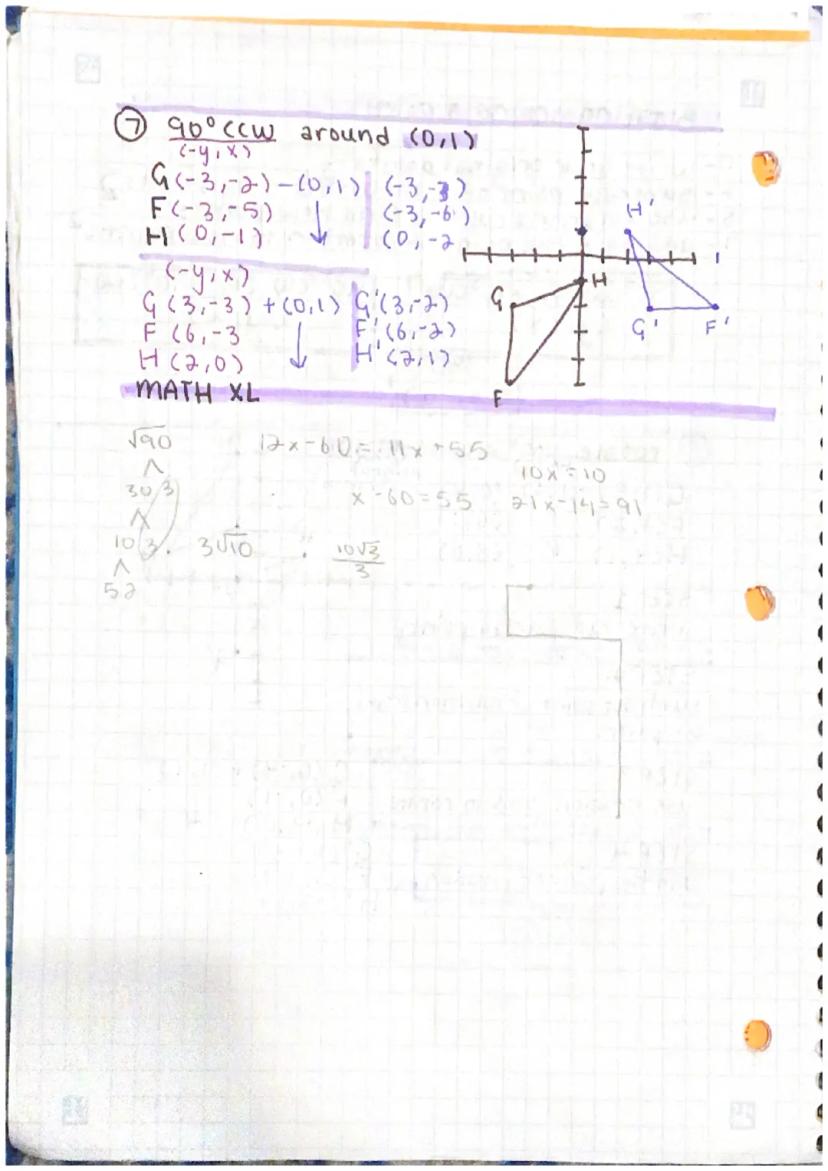 ⑦ 90° CCW around (0,1)
(-y,x)
G(-3,-2) -(0,1) (-3,-3)
F(-3,-5) ↓ (-3,-6)
H(0,-1) (0,-2
(-y,x)
G(3,-3) +(0,1) G'(3,-2)
F(6,-3 ↓ F'(6,-2)
H(2,0) H'(2,1)
H'
H
G
G'
F'
F
MATH XL
√90
30 3
10 3
52
3√10
10√3
3
12x-60= 11x+55
x-60=55
10x=10
21x-14=91